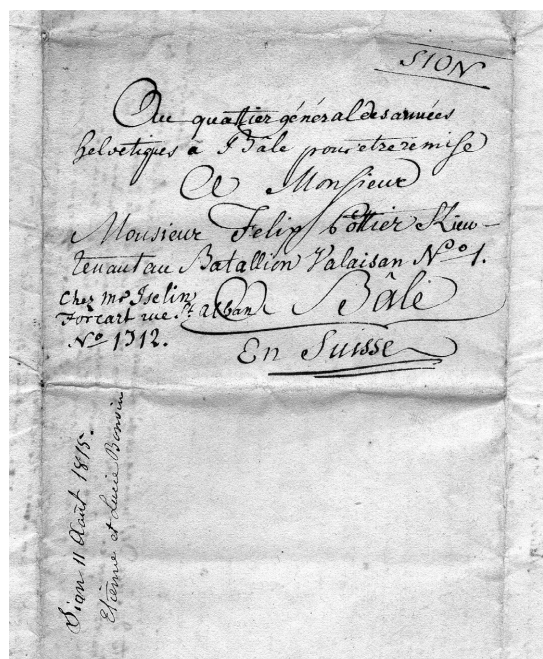 SION
Au quartier général des armées
helvetiques à Bâle pour etre remise
A Monsieur
Monsieur Felix Pottier Lieu-
tenant au Batallion Valaisan Nº 1.
Chez mr Iselin
Forcart rue St alban Bâle
Nº 1312.
En Suisse
Sion 11 Août 1815.
Etienne et Lucie Bonvin